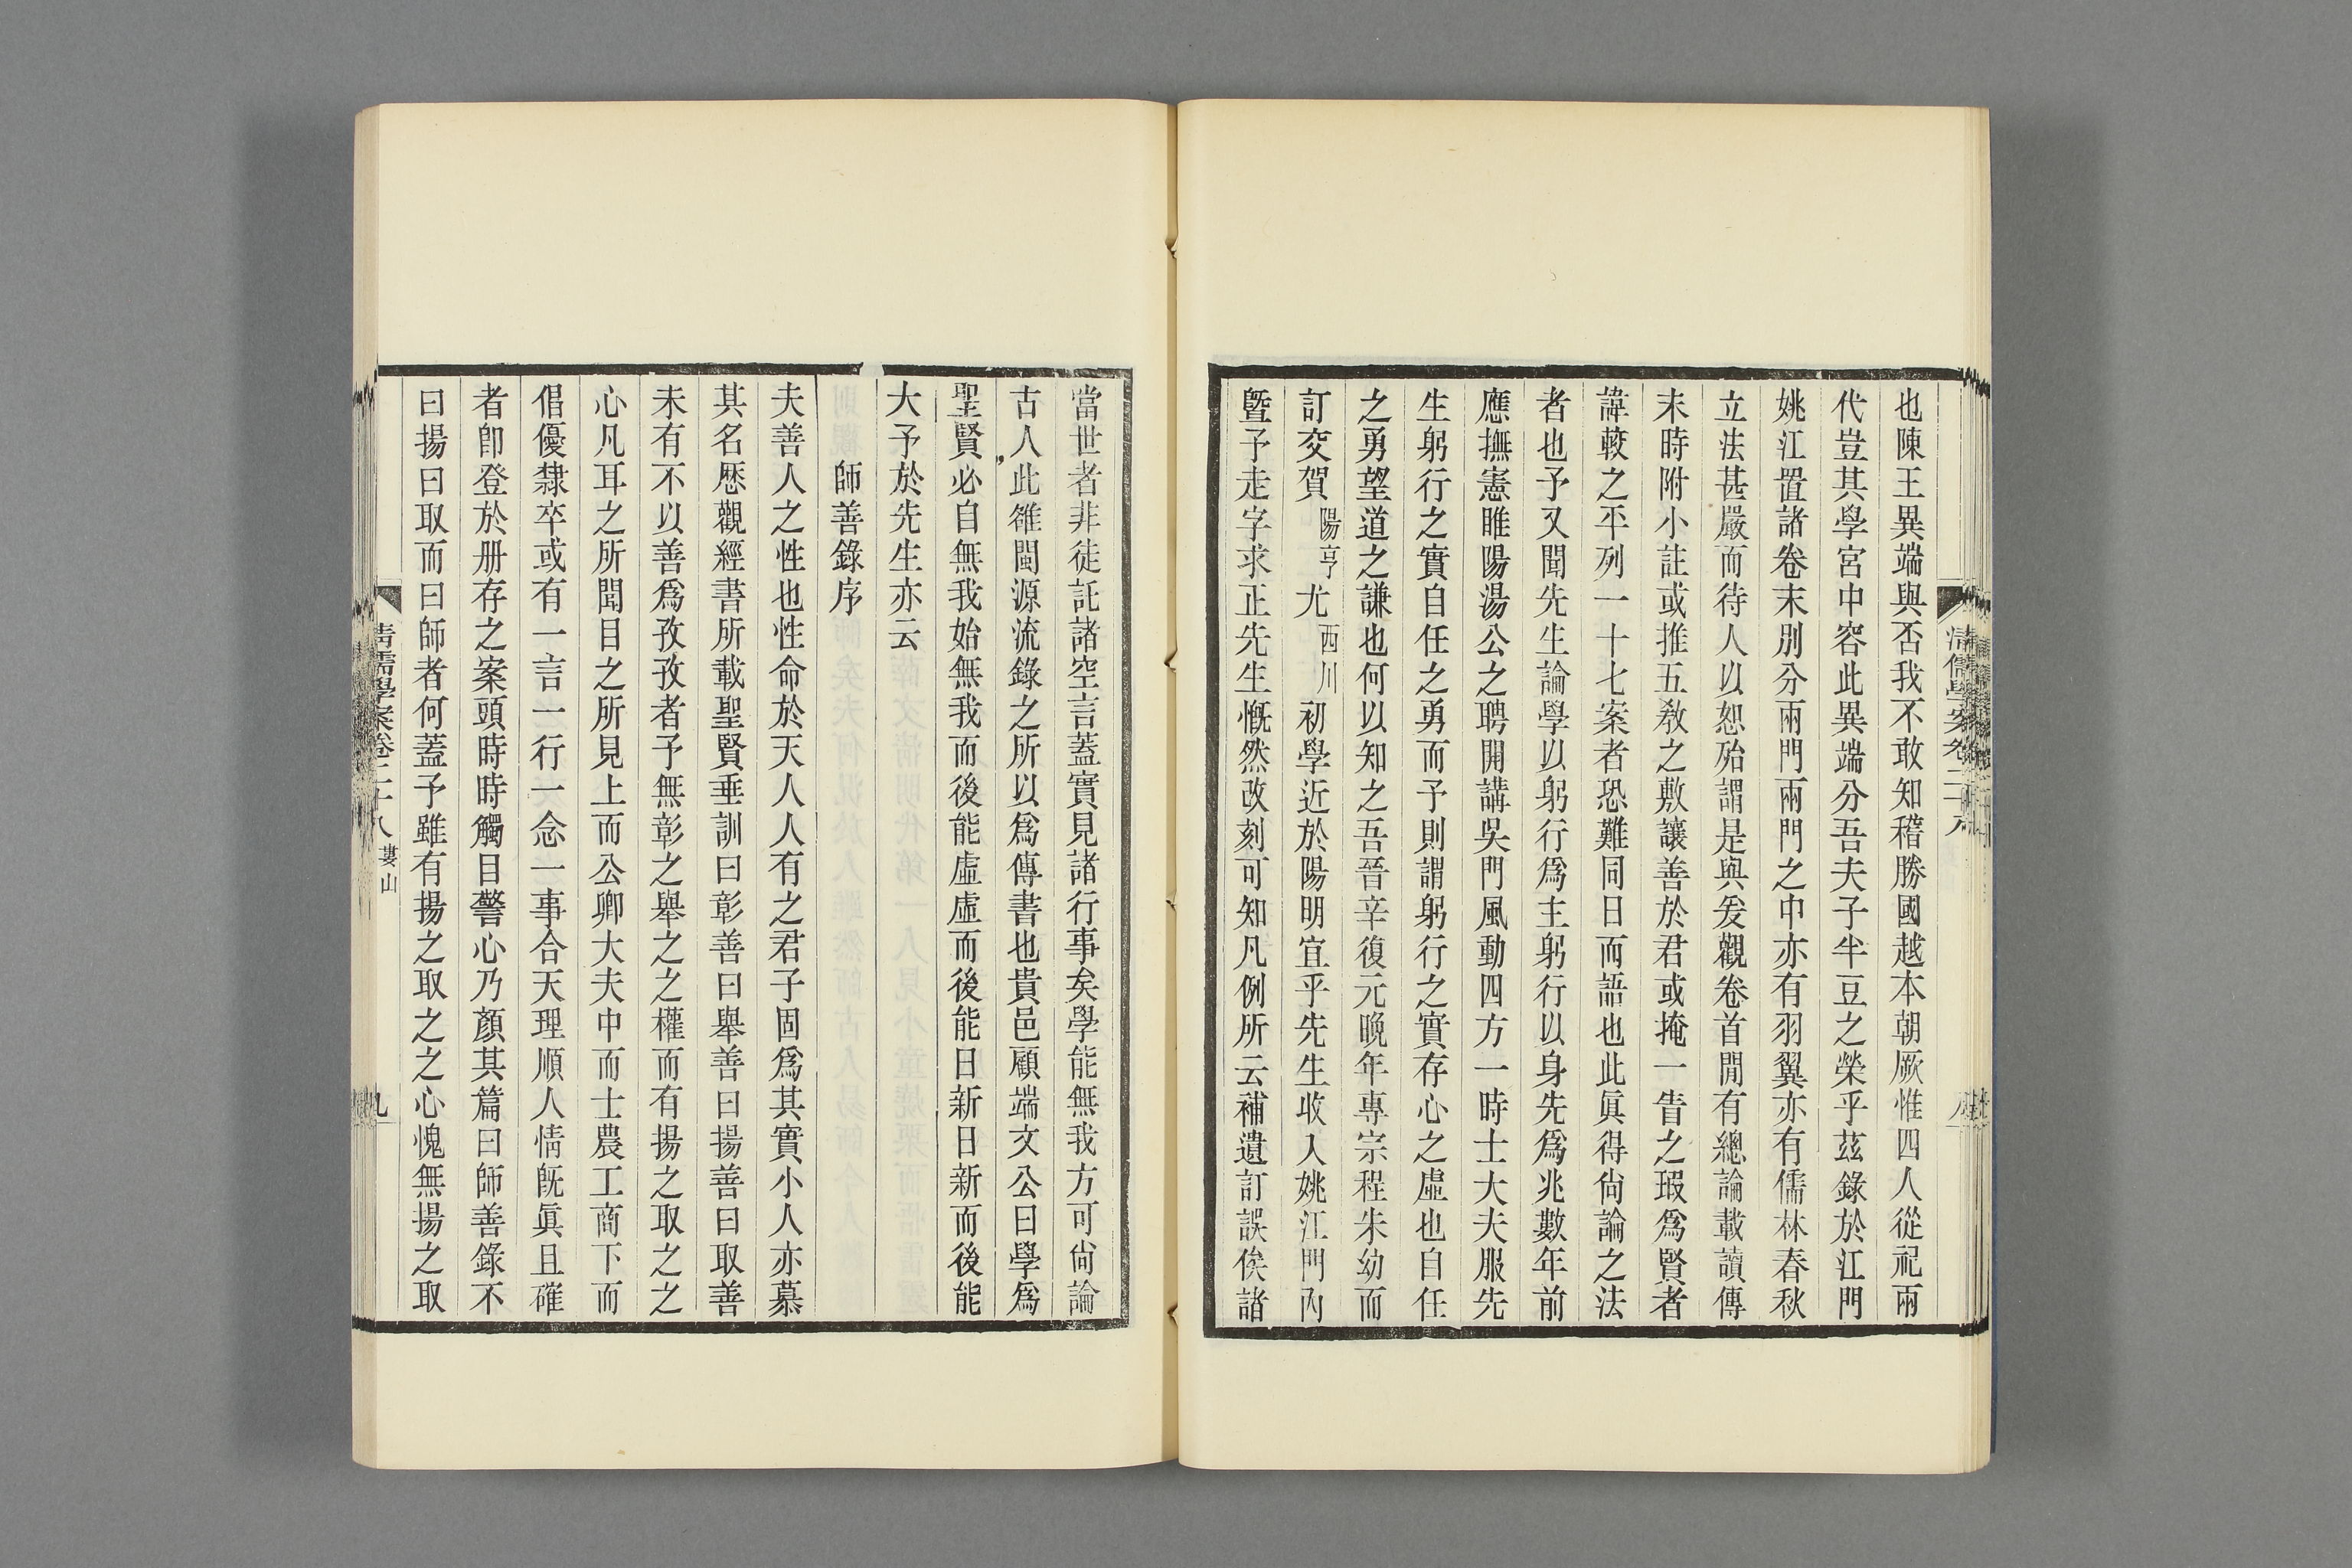 清儒學案卷二十八
也陳王異端與否我不敢知稽勝國越本朝厥惟四人從祀兩
代豈其學宮中容此異端分吾夫子半豆之榮乎茲錄於江門
姚江置諸卷末別分兩門兩門之中亦有羽翼亦有儒林春秋
立法甚嚴而待人以恕殆謂是與爰觀卷首閒有總論載讀傳
末時附小註或推五敎之敷讓善於君或掩一眚之瑕爲賢者
諱較之平列一十七案者恐難同日而語也此眞得尙論之法
者也予又聞先生論學以躬行爲主躬行以身先爲兆數年前
應撫憲睢陽湯公之聘開講吳門風動四方一時士大夫服先
生躬行之實自任之勇而予則謂躬行之實存心之虛也自任
之勇望道之謙也何以知之吾晉辛復元晚年專宗程朱幼而
訂交賀陽亨尤西川初學近於陽明宜乎先生收入姚江門內
曁予走字求正先生慨然改刻可知凡例所云補遺訂誤俟諸
當世者非徒託諸空言蓋實見諸行事矣學能無我方可尙論
古人此雒閩源流錄之所以爲傳書也貴邑顧端文公曰學爲
聖賢必自無我始無我而後能虛虛而後能日新日新而後能
大予於先生亦云
師善錄序
夫善人之性也性命於天人人有之君子固爲其實小人亦慕
其名歷觀經書所載聖賢垂訓曰彰善曰舉善曰揚善曰取善
未有不以善爲孜孜者予無彰之舉之之權而有揚之取之之
心凡耳之所聞目之所見上而公卿大夫中而士農工商下而
倡優隸卒或有一言一行一念一事合天理順人情旣眞且確
者卽登於册存之案頭時時觸目警心乃顏其篇曰師善錄不
曰揚曰取而曰師者何蓋予雖有揚之取之之心愧無揚之取
清儒學案卷二十八 婁山
九